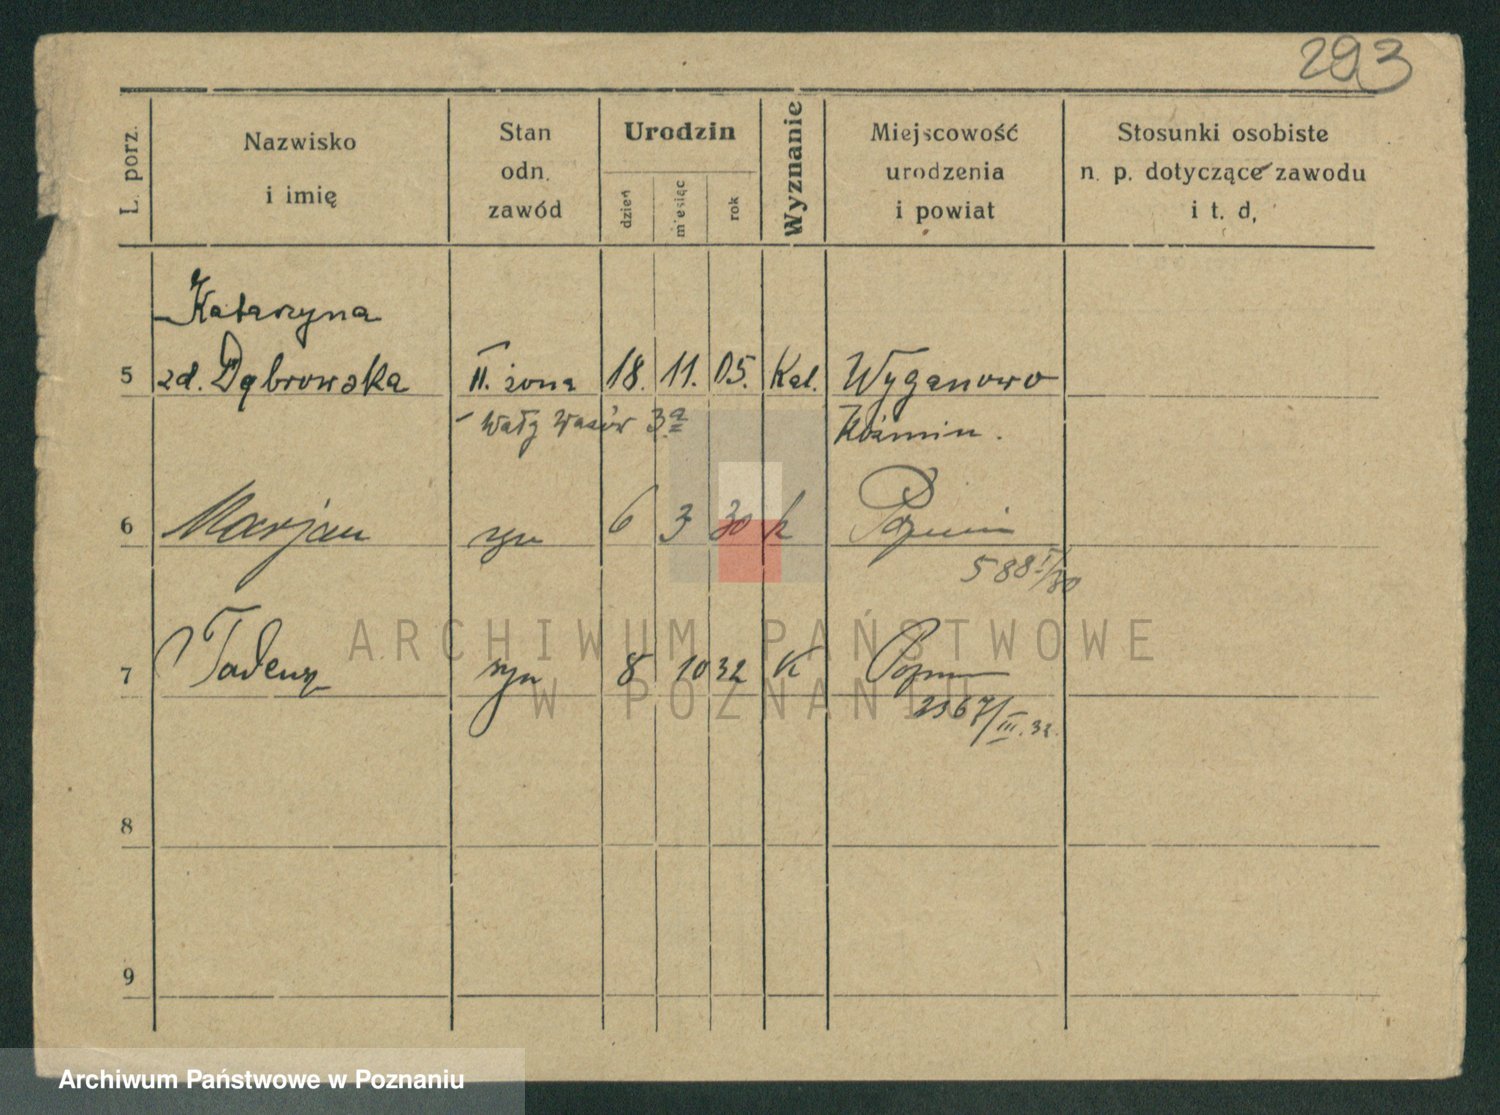 293
L. porz.
Nazwisko
i imię
Stan
odn.
zawód
Urodzin
dzień
miesiąc
rok
Wyznanie
Miejscowość
urodzenia
i powiat
Stosunki osobiste
n. p. dotyczące zawodu
i t. d,
Katarzyna
5 zd. Dąbrowska II. żona 18. 11. 05. Kat. Wyganowo
Wały 3a Koźmin.
6 Marjan syn 6 3 30 k Poznań
588 I/30
7 Tadeusz syn 8 10 32 K Poznań
2367/III.32.
8
9
ARCHIWUM PAŃSTWOWE
W POZNANIU
Archiwum Państwowe w Poznaniu